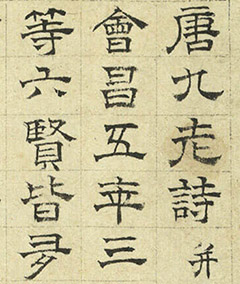 唐九老詩并
會昌五年三
等六賢皆多